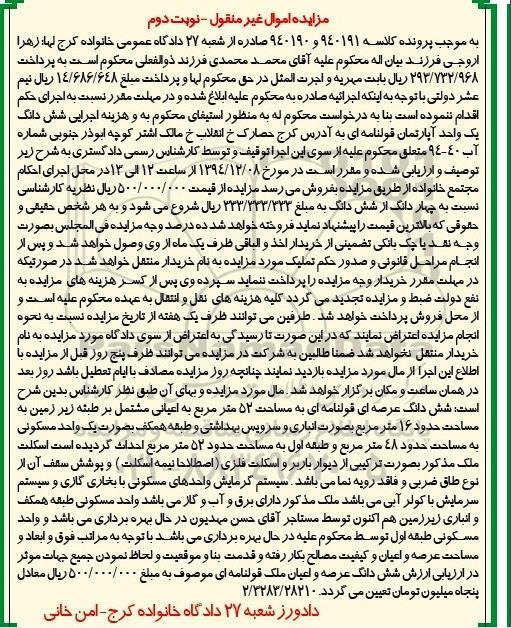 مزایده اموال غیر منقول - نوبت دوم
به موجب پرونده کلاسه ۹۴۰۱۹۱ و ۹۴۰۱۹۰ صادره از شعبه ۲۷ دادگاه عمومی خانواده کرج لها: زهرا
اروجی فرزند بیان اله محکوم علیه آقای محمد محمدی فرزند ذوالفعلی محکوم است به پرداخت
۲۹۳/۷۳۲/۹۶۸ ریال بابت مهریه و اجرت المثل در حق محکوم لها و پرداخت مبلغ ۱۴/۶۸۶/۶۴۸ ریال نیم
عشر دولتی با توجه به اینکه اجرائیه صادره به محکوم علیه ابلاغ شده و در مهلت مقرر نسبت به اجرای حکم
اقدام ننموده است بنا به درخواست محکوم له به منظور استیفای محکوم به و هزینه اجرایی شش دانگ
یک واحد آپارتمان قولنامه ای به آدرس کرج حصارک خ انقلاب خ مالک اشتر کوچه ابوذر جنوبی شماره
آب ۴۰-۹۴ متعلق محکوم علیه از سوی این اجرا توقیف و توسط کارشناس رسمی دادگستری به شرح زیر
توصیف و ارزیابی شده و مقرر است در مورخ ۱۳۹۴/۱۲/۰۸ از ساعت ۱۲ الی ۱۳ در محل اجرای احکام
مجتمع خانواده از طریق مزایده بفروش می رسد مزایده از قیمت ۵۰۰/۰۰۰/۰۰۰ ریال نظریه کارشناسی
نسبت به چهار دانگ از شش دانگ به مبلغ ۳۳۳/۳۳۳/۳۳۳ ریال شروع می شود و به هر شخص حقیقی و
حقوقی که بالاترین قیمت را پیشنهاد نماید فروخته خواهد شد ده درصد وجه مزایده فی المجلس بصورت
وجه نقد یا چک بانکی تضمینی از خریدار اخذ و الباقی ظرف یک ماه از وی وصول خواهد شد و پس از
انجام مراحل قانونی و صدور حکم تملیک مورد مزایده به نام خریدار منتقل خواهد شد در صورتیکه
در مهلت مقرر خریدار وجه مزایده را پرداخت ننماید سپرده وی پس از کسر هزینه های مزایده به
نفع دولت ضبط و مزایده تجدید می گردد کلیه هزینه های نقل و انتقال به عهده محکوم علیه است و
از محل فروش پرداخت خواهد شد . طرفین می توانند ظرف یک هفته از تاریخ مزایده نسبت به نحوه
انجام مزایده اعتراض نمایند که در این صورت تا رسیدگی به اعتراض از سوی دادگاه مورد مزایده به نام
خریدار منتقل نخواهد شد ضمنا طالبین به شرکت در مزایده می توانند ظرف پنج روز قبل از مزایده با
اطلاع این اجرا از مال مورد مزایده بازدید نمایند چنانچه روز مزایده مصادف با ایام تعطیل باشد روز بعد
در همان ساعت و مکان برگزار خواهد شد. مال مورد مزایده و بهای آن طبق نظر کارشناس بدین شرح
است: شش دانگ عرصه ای قولنامه ای به مساحت ۵۲ متر مربع به اعیانی مشتمل بر طبقه زیر زمین به
مساحت حدود ۱۶ متر مربع بصورت انباری و سرویس بهداشتی و طبقه همکف بصورت یک واحد مسکونی
به مساحت حدود ۴۸ متر مربع و طبقه اول به مساحت حدود ۵۲ متر مربع احداث گردیده است اسکلت
ملک مذکور بصورت ترکیبی از دیوار باربر و اسکلت فلزی (اصطلاحا نیمه اسکلت) و پوشش سقف آن از
نوع طاق ضربی و فاقد رویه نما می باشد. سیستم گرمایش واحدهای مسکونی با بخاری گازی و سیستم
سرمایش با کولر آبی می باشد ملک مذکور دارای برق و آب و گاز می باشد واحد مسکونی طبقه همکف
و انباری زیرزمین هم اکنون توسط مستاجر آقای حسن مهدیون در حال بهره برداری می باشد و واحد
مسکونی طبقه اول توسط محکوم علیه در حال بهره برداری می باشد با توجه به مراتب فوق و ابعاد و
مساحت عرصه و اعیان و کیفیت مصالح بکار رفته و قدمت بنا و موقعیت و لحاظ نمودن جمیع جهات موثر
در ارزیابی ارزش شش دانگ عرصه و اعیان ملک قولنامه ای موصوف به مبلغ ۵۰۰/۰۰۰/۰۰۰ ریال معادل
پنجاه میلیون تومان تعیین می گردد. ۲/۳۲۸۳/۲۸۲۱۰
دادورز شعبه ۲۷ دادگاه خانواده کرج- امن خانی